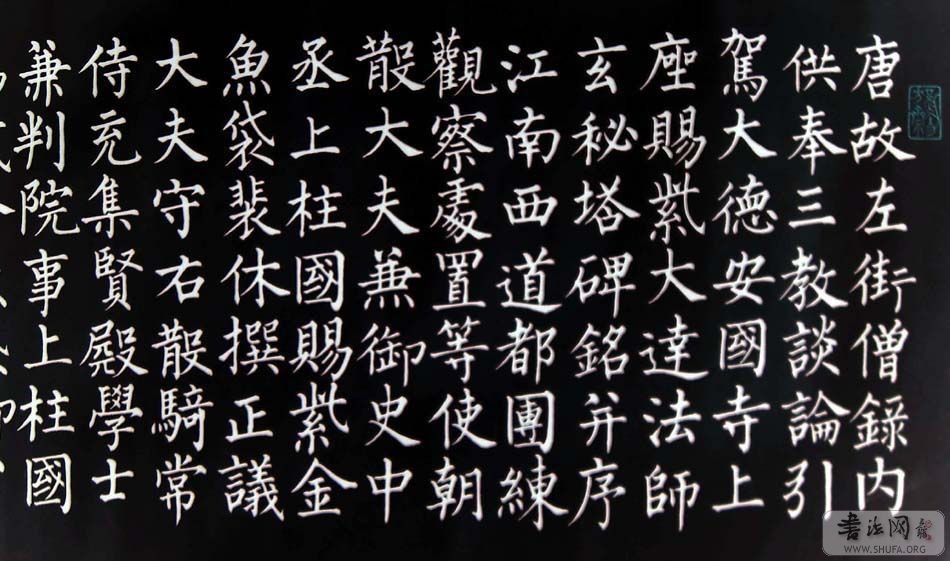 唐故左街僧録内
供奉三教談論引
駕大德安國寺上
座賜紫大達法師
玄秘塔碑銘并序
江南西道都團練
觀察處置等使朝
散大夫兼御史中
丞上柱國賜紫金
魚袋裴休撰正議
大夫守右散騎常
侍充集賢殿學士
兼判院事上柱國
書法网
WWW.SHUFA.ORG